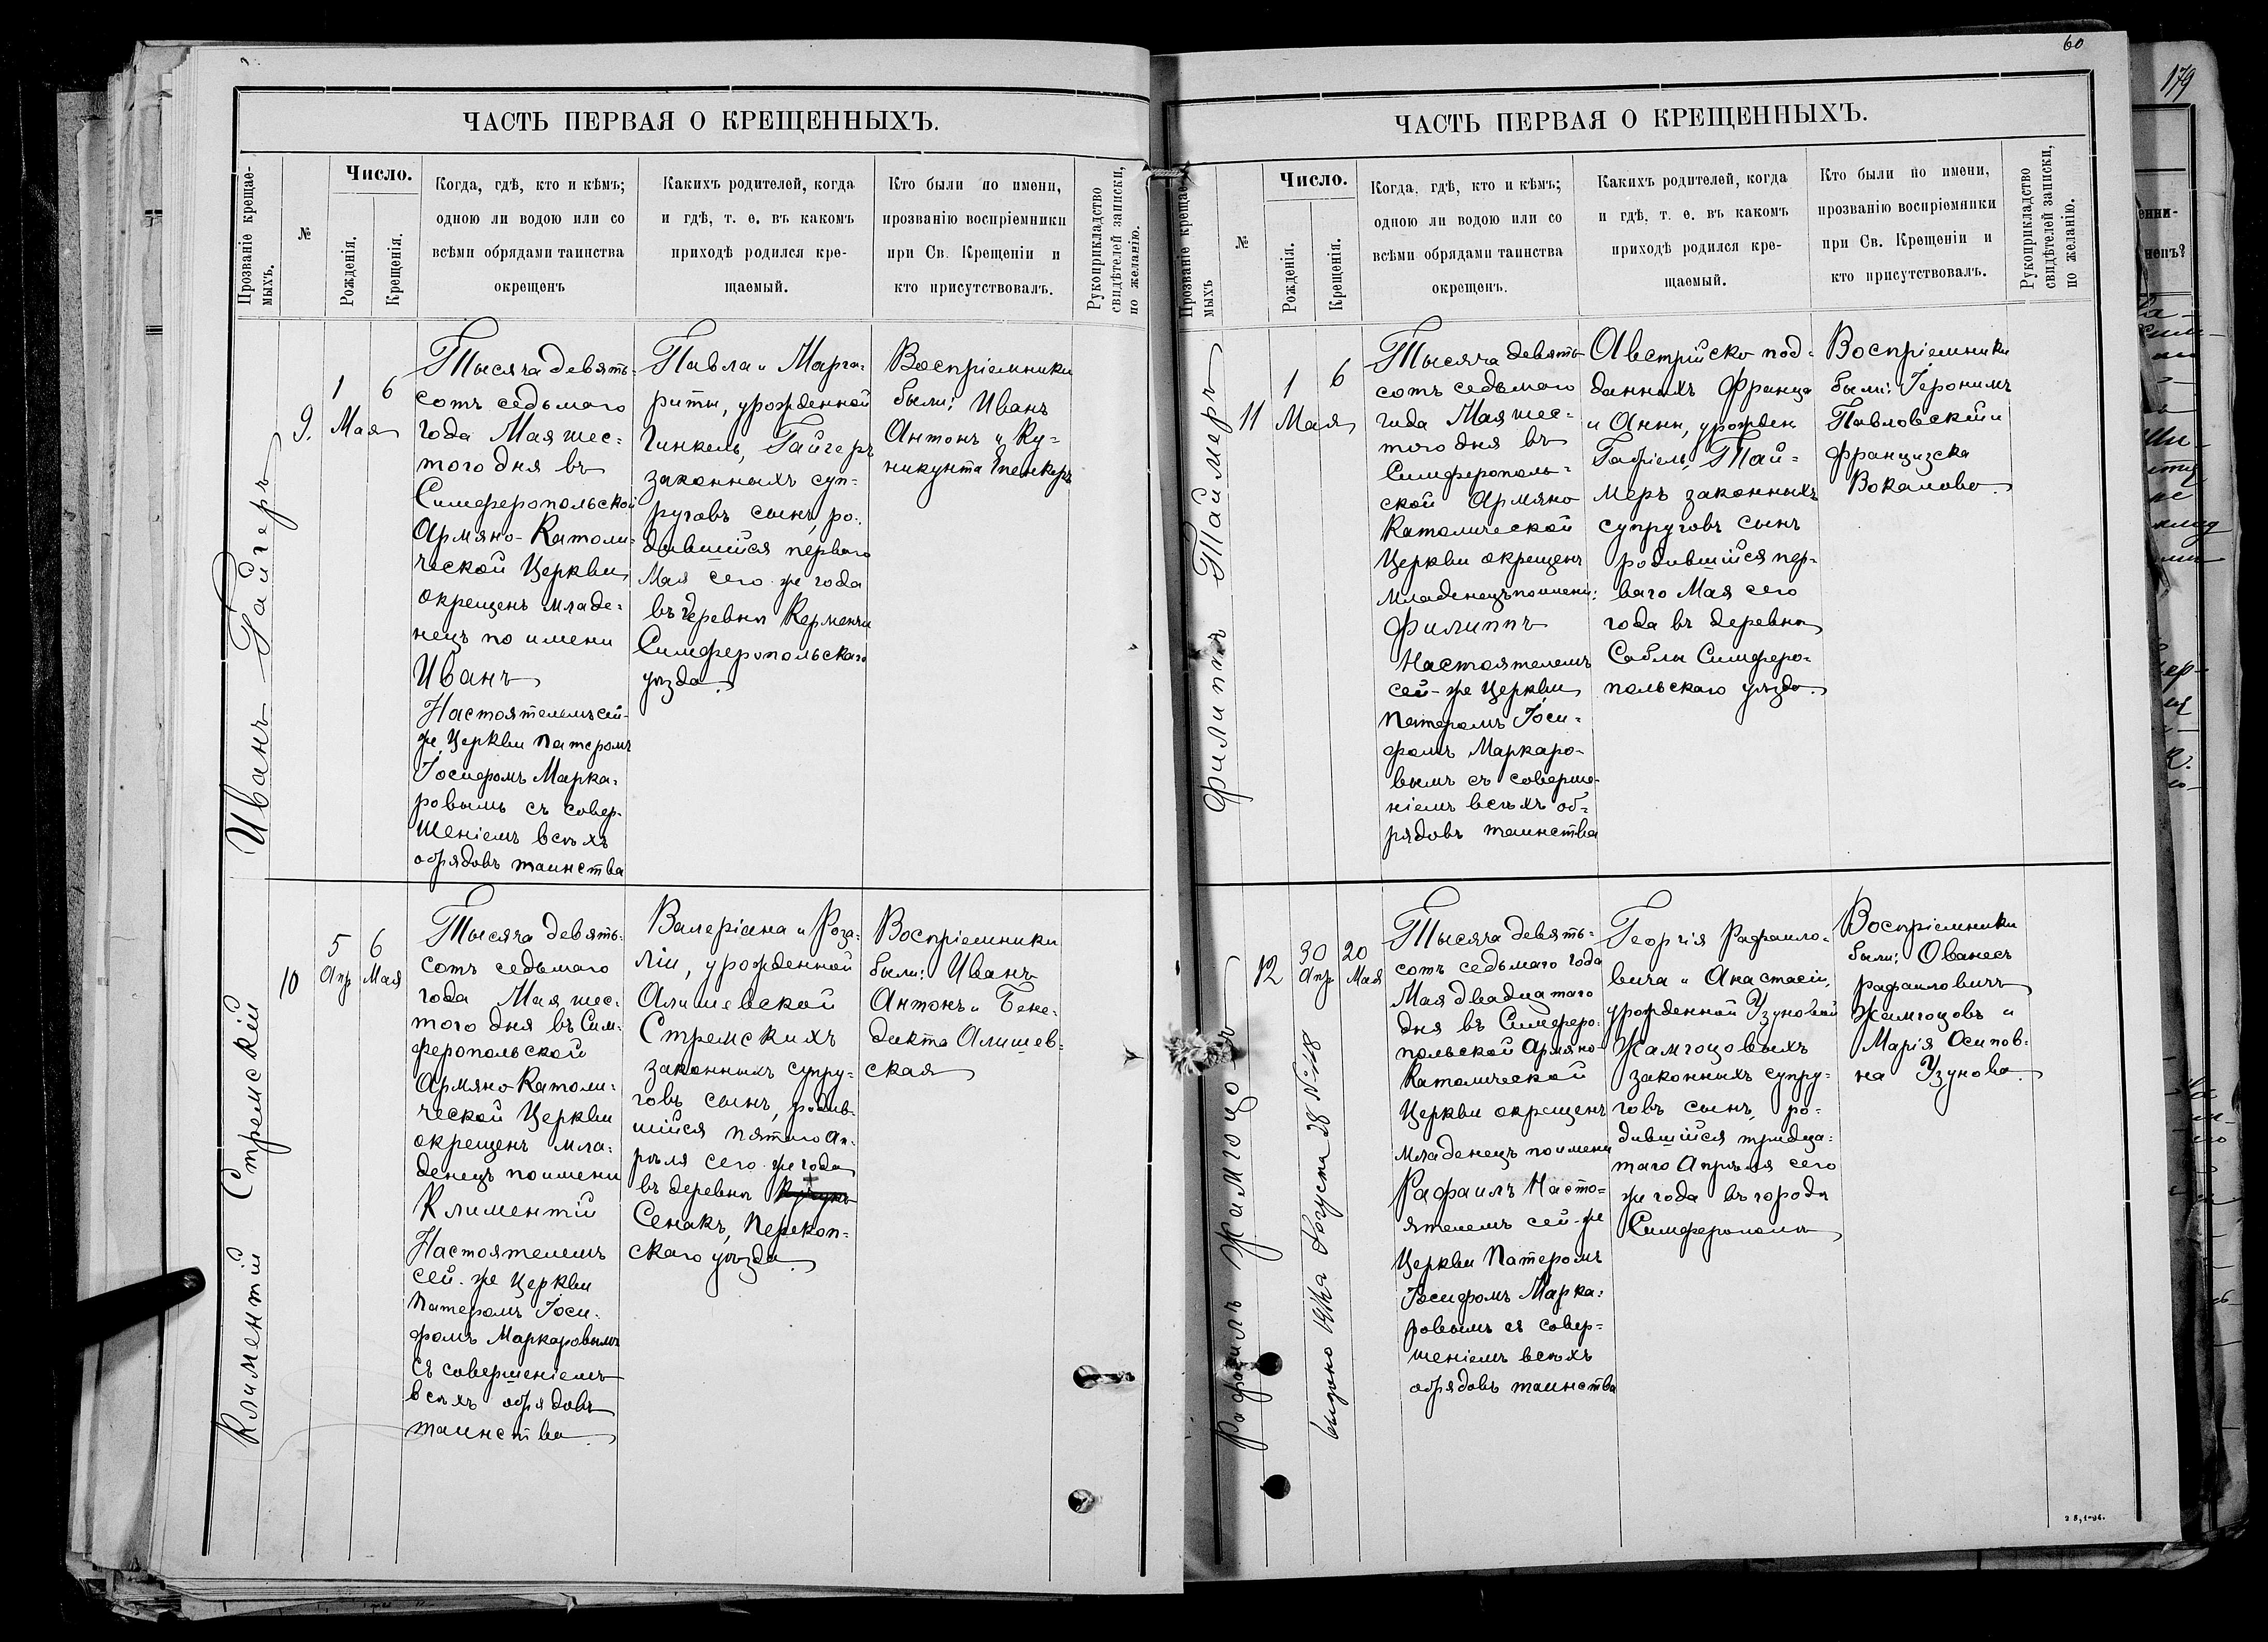 60
179
ЧАСТЬ ПЕРВАЯ О КРЕЩЕННЫХЪ.
Прозваніе крещае-
мыхъ.
№
Число.
Рожденія.
Крещенія.
Когда, гдѣ, кто и кѣмъ;
одною ли водою или со
всѣми обрядами таинства
окрещенъ
Какихъ родителей, когда
и гдѣ, т. е. въ какомъ
приходѣ родился кре-
щаемый.
Кто были по имени,
прозванію воспріемники
при Св. Крещеніи и
кто присутствовалъ.
Рукоприкладство
свидѣтелей записки,
по желанію.
Иванъ Гайгеръ
9.
1
Мая
6
Тысяча девять-
сотъ седьмаго
года Мая шес-
того дня въ
Симферопольской
Армяно-Католи-
ческой Церкви
окрещенъ младе-
нецъ по имени
Иванъ
Настоятелемъ сей-
же Церкви Патеромъ
Іосифомъ Марка-
ровымъ съ совер-
шеніемъ всѣхъ
обрядовъ таинства
Павла и Марга-
риты, урожденной
Гинкель, Гайгеръ
законныхъ суп-
руговъ сынъ, ро-
дившійся перваго
Мая сего-же года
въ деревнѣ Керменчи
Симферопольскаго
уѣзда.
Воспріемники
были: Иванъ
Антонъ и Ку-
никунта
Климентій Стремскій
10
5
Апр
6
Мая
Тысяча девять-
сотъ седьмаго
года Мая шес-
того дня въ Сим-
феропольской
Армяно-Католи-
ческой Церкви
окрещенъ мла-
денецъ по имени
Климентій
Настоятелемъ
сей-же Церкви
Патеромъ Іоси-
фомъ Маркаровымъ
съ совершеніемъ
всѣхъ обрядовъ
таинства.
Валеріана и Роза-
ліи, урожденной
Алишевской
Стремскихъ
законныхъ супру-
говъ сынъ, родив-
шійся пятаго Ап-
рѣля сего-же года
въ деревнѣ
Сенакъ, Перекоп-
скаго уѣзда.
Воспріемники
были: Иванъ
Антонъ и Бене-
дикта Алишев-
ская
ЧАСТЬ ПЕРВАЯ О КРЕЩЕННЫХЪ.
Прозваніе крещае-
мыхъ
№
Число.
Рожденія.
Крещенія.
Когда, гдѣ, кто и кѣмъ;
одною ли водою или со
всѣми обрядами таинства
окрещенъ.
Какихъ родителей, когда
и гдѣ, т. е. въ какомъ
приходѣ родился кре-
щаемый.
Кто были по имени,
прозванію воспріемники
при Св. Крещеніи и
кто присутствовалъ.
Рукоприкладство
свидѣтелей записки,
по желанію.
Филиппъ Таймеръ
11
1
Мая
6
Тысяча девять-
сотъ седьмаго
года Мая шес-
того дня въ
Симферополь-
ской Армяно
Католической
Церкви окрещенъ
младенецъ по имени:
Филиппъ
Настоятелемъ
сей-же Церкви
Патеромъ Іоси-
фомъ Маркаро-
вымъ съ соверше-
ніемъ всѣхъ об-
рядовъ таинства
Австрійско под-
данныхъ Франца
и Анны, урожден
Габріель, Тай-
меръ законныхъ
супруговъ сынъ
родившійся пер-
ваго Мая сего
года въ деревнѣ
Саблы Симферо-
польскаго уѣзда.
Воспріемники
были: Іеронимъ
Павловскій и
Французска
Вокалова.
Рафаилъ Жамгоцовъ
12
30
Апр
20
Мая
выдано Августа 28 №
Тысяча девять-
сотъ седьмаго года
Мая двадцатаго
дня въ Симферо-
польской Армяно-
Католической
Церкви окрещенъ
младенецъ по имени
Рафаилъ Насто-
ятелемъ сей-же
Церкви Патеромъ
Іосифомъ Марка-
ровымъ съ совер-
шеніемъ всѣхъ
обрядовъ таинства
Георгія Рафаило-
вича и Анастасіи,
урожденной Узуновой
Жамгоцовыхъ
законныхъ супру-
говъ сынъ, ро-
дившійся тридца-
таго Апрѣля сего
же года въ городѣ
Симферополѣ
Воспріемники
были: Ованесъ
Рафаиловичъ
Жамгоцовъ и
Марія Осипов-
на Узунова.